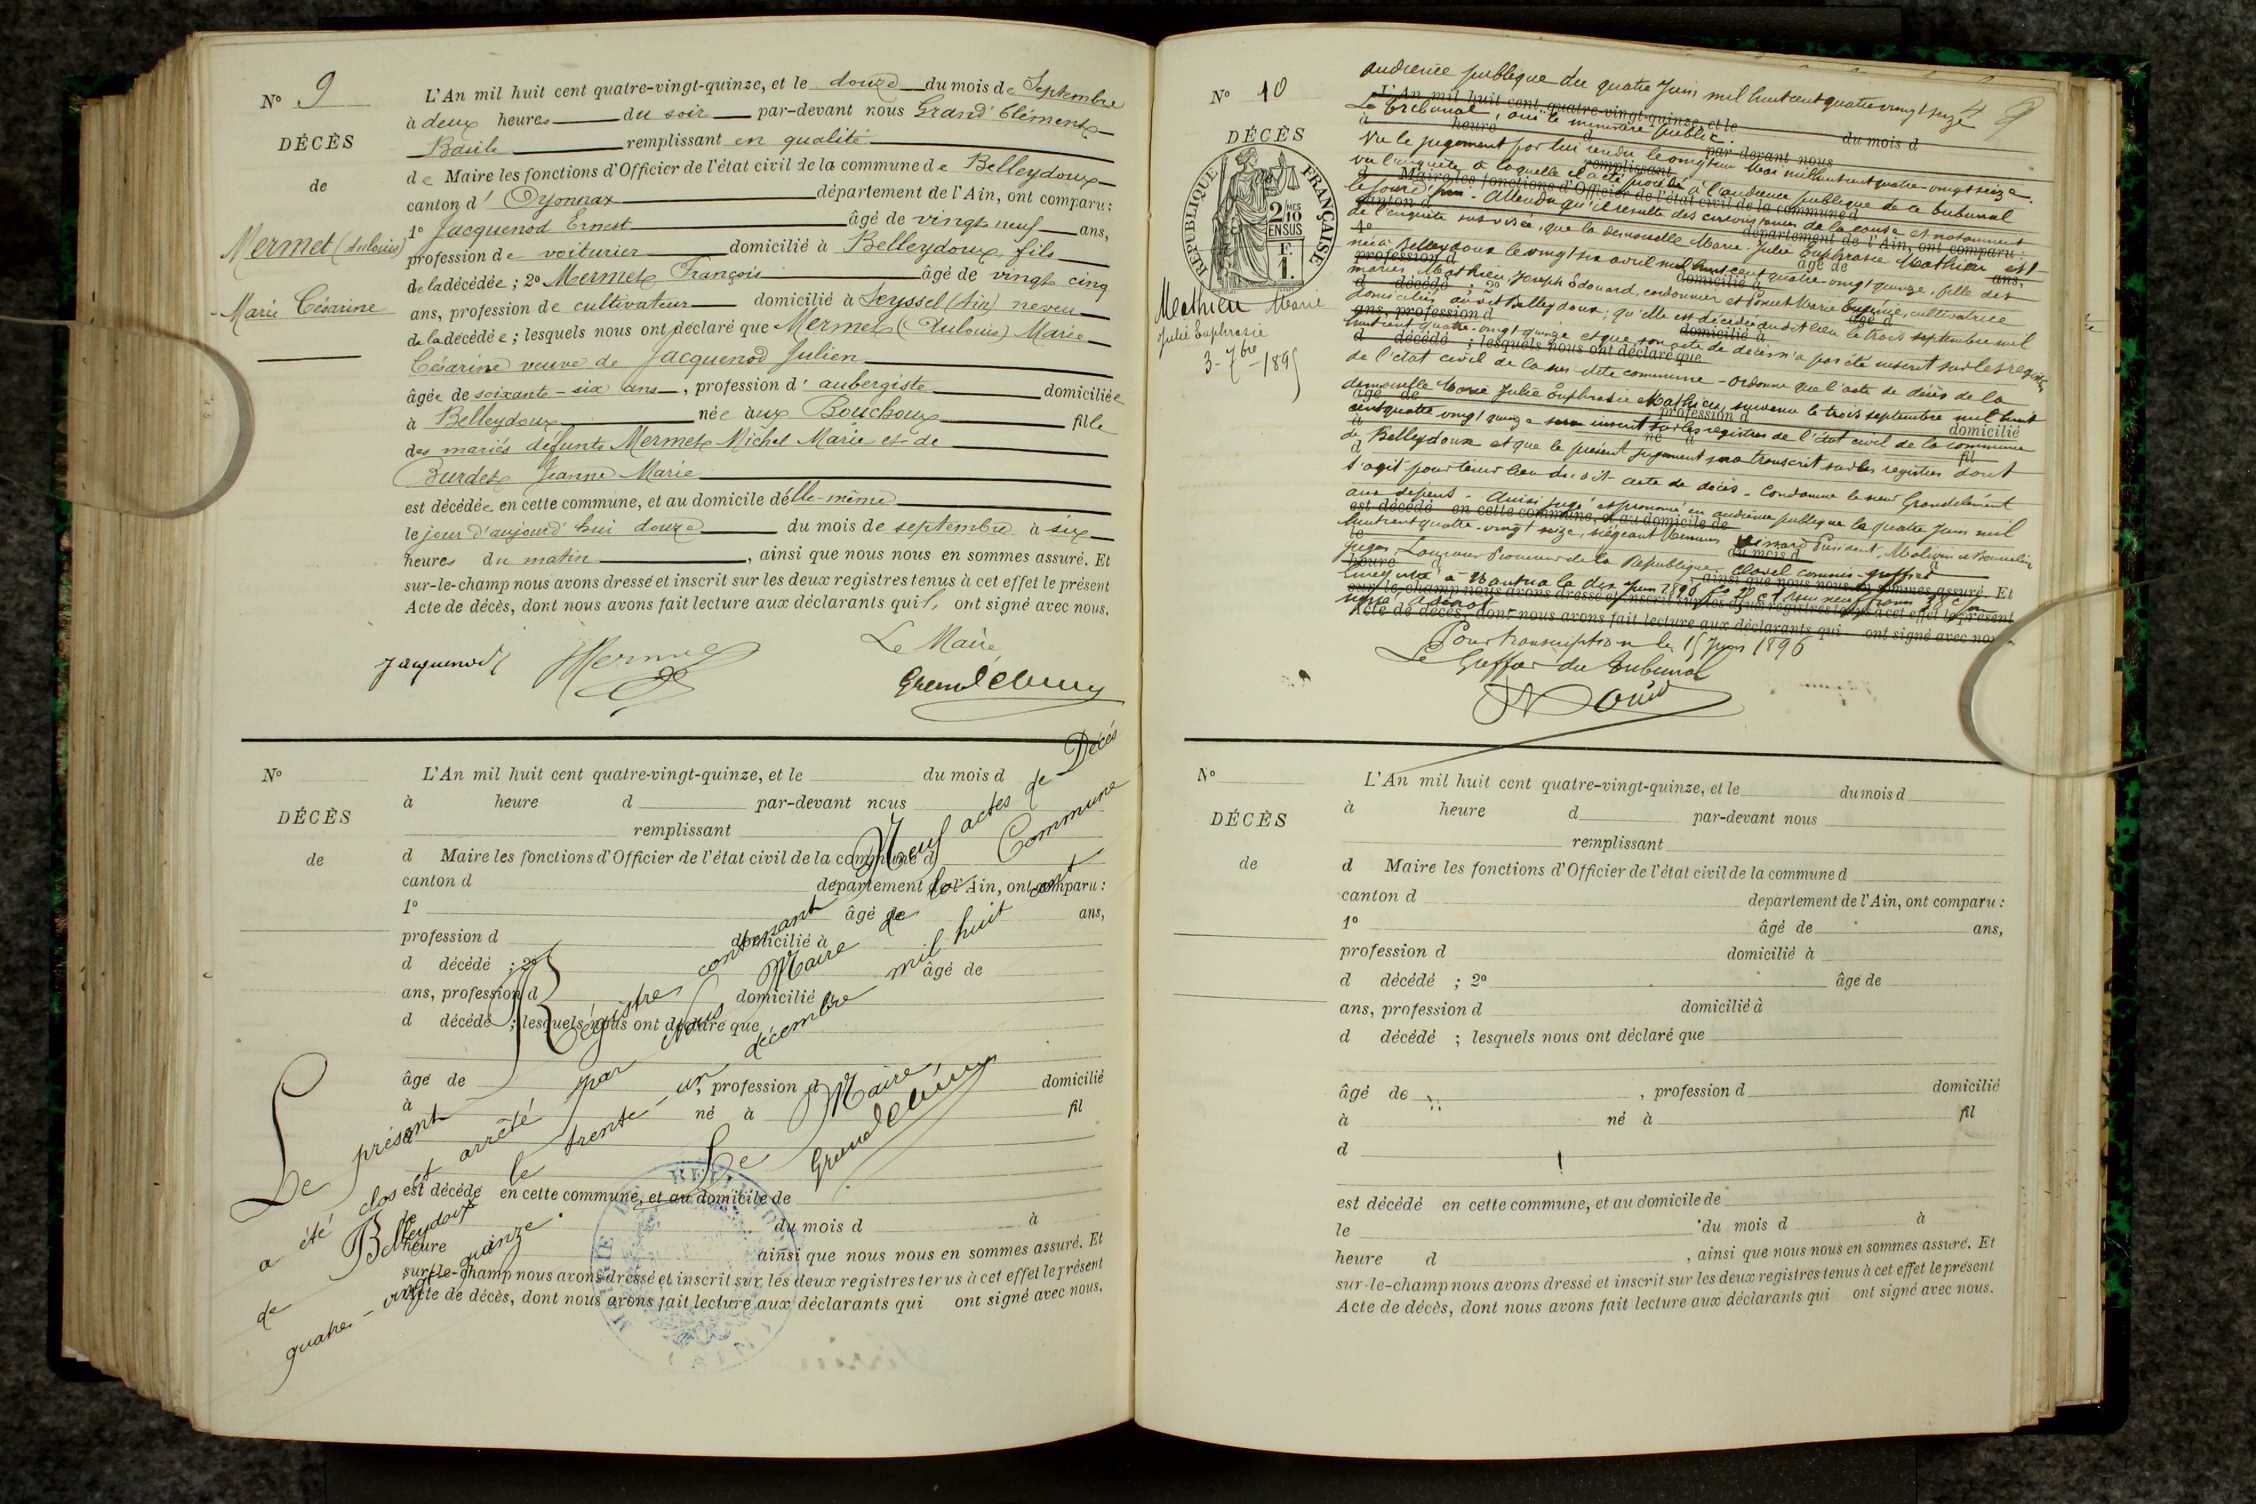 N° 9
DÉCÈS
de
Mermet (Aulouise)
Marie Césarine
L'An mil huit cent quatre-vingt-quinze, et le douze du mois de Septembre
à deux heures du soir par-devant nous Grand'Clément
Basile remplissant en qualité
de Maire les fonctions d'Officier de l'état civil de la commune de Belleydoux
canton d'Oyonnax département de l'Ain, ont comparu:
1° Jacquenod Ernest âgé de vingt neuf ans,
profession de voiturier domicilié à Belleydoux fils
de la décédée; 2° Mermet François âgé de vingt cinq
ans, profession de cultivateur domicilié à Seyssel (Ain) neveu
de la décédée; lesquels nous ont declaré que Mermet Marie
Césarine veuve de Jacquenod Julien
âgée de soixante-six ans, profession d'aubergiste domiciliée
à Belleydoux née aux Bouchoux fille
des mariés défunts Mermet Michel Marie et de
Burdet Jeanne Marie
est décédée en cette commune, et au domicile d'elle-même
le jour d'aujourd'hui douze du mois de septembre à six
heures du matin, ainsi que nous nous en sommes assuré. Et
sur-le-champ nous avons dressé et inscrit sur les deux registres tenus à cet effet le présent
Acte de décès, dont nous avons fait lecture aux déclarants qui ont signé avec nous.
Le Maire
Jacquenod Mermet Grandclément
N°
DÉCÈS
de
L'An mil huit cent quatre-vingt-quinze, et le du mois d
à heure d par-devant nous
remplissant
d Maire les fonctions d'Officier de l'état civil de la commune d
canton d département de l'Ain, ont comparu:
1° âgé de ans,
profession d domicilié à
d décédé ; 2° âgé de
ans, profession d domicilié
d décédé ; lesquels nous ont déclaré que
âgé de , profession d domicilié
à né à fil
d
est décédé en cette commune, et au domicile de
le du mois d à
heure ainsi que nous nous en sommes assuré. Et
sur-le-champ nous avons dressé et inscrit sur les deux registres tenus à cet effet le présent
Acte de décès, dont nous avons fait lecture aux déclarants qui ont signé avec nous.
Le présent Régistre contenant Neuf actes de Décés
a été clos et arrêté par Nous Maire de la Commune
de Belleydoux le trente-un décembre mil huit cent
quatre-vingt-quinze.
Le Maire,
Grandclément
MAIRIE DE BELLEYDOUX (AIN)
N° 10
DÉCÈS
RÉPUBLIQUE FRANÇAISE
2/10 EN SUS
F. 1.
Mathieu Marie
Julie Euphrasie
3-7bre-1895
audience publique du quatre Juin mil huit cent quatre vingt seize
L'An mil huit cent quatre-vingt-quinze, et le du mois d
Le Tribunal, oui le ministère public
à heure d par-devant nous
Vu le jugement par lui rendu le vingt un Mai mil huit cent quatre-vingt seize.
remplissant
vu l'enquête à laquelle il a été procédé à l'audience publique de ce tribunal
d Maire les fonctions d'Officier de l'état civil de la commune d
le jour d'hui. Attendu qu'il résulte des circonstances de la cause et notamment
canton d département de l'Ain, ont comparu:
de l'enquête sus visée, que la demoiselle Marie Julie Euphrasie Mathieu est
1° âgé de ans,
née à Belleydoux le vingt six avril mil huit cent quatre-vingt quinze, fille des
profession d domicilié à
mariés Mathieu Joseph Edouard, cordonnier et Poncet Marie Eugénie, cultivatrice
d décédé ; 2° âgé d
domiciliés audit Belleydoux; qu'elle est décédée audit lieu le trois septembre mil
ans, profession d domicilié à
huit cent quatre-vingt quinze et que son acte de décès n'a pas été inscrit sur les registres
d décédé ; lesquels nous ont déclaré que
de l'état civil de la sus-dite commune - Ordonne que l'acte de décès de la
demoiselle Marie Julie Euphrasie Mathieu, survenu le trois septembre mil huit
âgé de profession d domicilié
cent quatre vingt quinze sera inscrit sur les registres de l'état civil de la commune
à né à fil
de Belleydoux et que le présent jugement sera transcrit sur les registres dont
d
s'agit pour tenir lieu du dit acte de décès - Condamne le sieur Grandclément
aux dépens - Ainsi jugé et prononcé en audience publique le quatre Juin mil
est décédé en cette commune, et au domicile de
huit cent quatre-vingt seize, siégeant Messieurs Président,
le du mois d à
juges, Procureur de la République, Clavel commis-greffier
heure d , ainsi que nous nous en sommes assuré. Et
Enregistré à Nantua le dix Juin 1896
sur-le-champ nous avons dressé et inscrit sur les deux registres tenus à cet effet le présent
Acte de décès, dont nous avons fait lecture aux déclarants qui ont signé avec nous.
Pour transcription le 15 Juin 1896
Le Greffier du Tribunal
N°
DÉCÈS
de
L'An mil huit cent quatre-vingt-quinze, et le du mois d
à heure d par-devant nous
remplissant
d Maire les fonctions d'Officier de l'état civil de la commune d
canton d département de l'Ain, ont comparu:
1° âgé de ans,
profession d domicilié à
d décédé ; 2° âgé de
ans, profession d domicilié à
d décédé ; lesquels nous ont déclaré que
âgé de , profession d domicilié
à né à fil
d
est décédé en cette commune, et au domicile de
le du mois d à
heure d , ainsi que nous nous en sommes assuré. Et
sur-le-champ nous avons dressé et inscrit sur les deux registres tenus à cet effet le présent
Acte de décès, dont nous avons fait lecture aux déclarants qui ont signé avec nous.